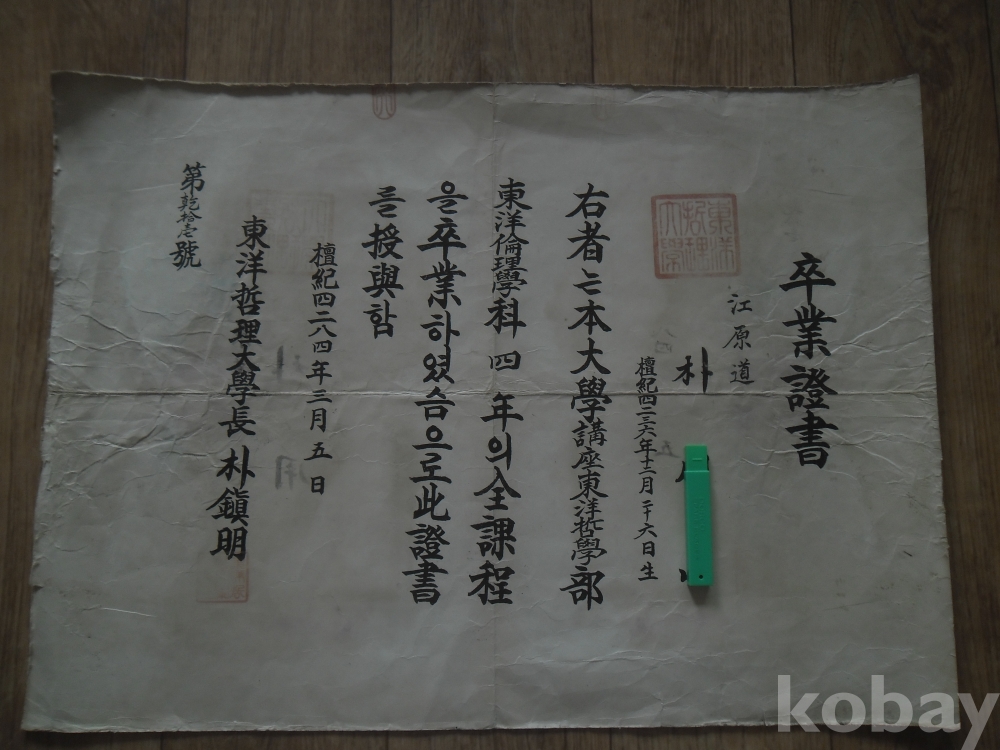 卒業證書
江原道
朴
檀紀四二三六年十二月二十六日生
右者는本大學講座東洋哲學部
東洋倫理學科四年의全課程
을卒業하였슴으로此證書
를授與함
檀紀四二八四年三月五日
東洋哲理大學長朴鎭明
第乾拾壱號
東洋哲理大學
kobay